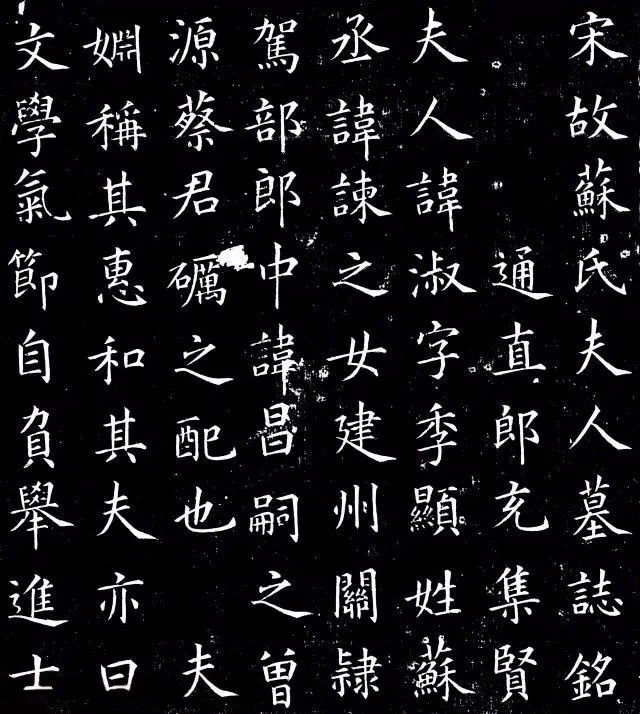 宋故蘇氏夫人墓誌銘
通直郎充集賢
夫人諱淑字季顯姓蘇
丞諱諫之女建州關隷
駕部郎中諱昌嗣之曾
源蔡君礪之配也 夫
婣稱其惠和其夫亦曰
文學氣節自負舉進士